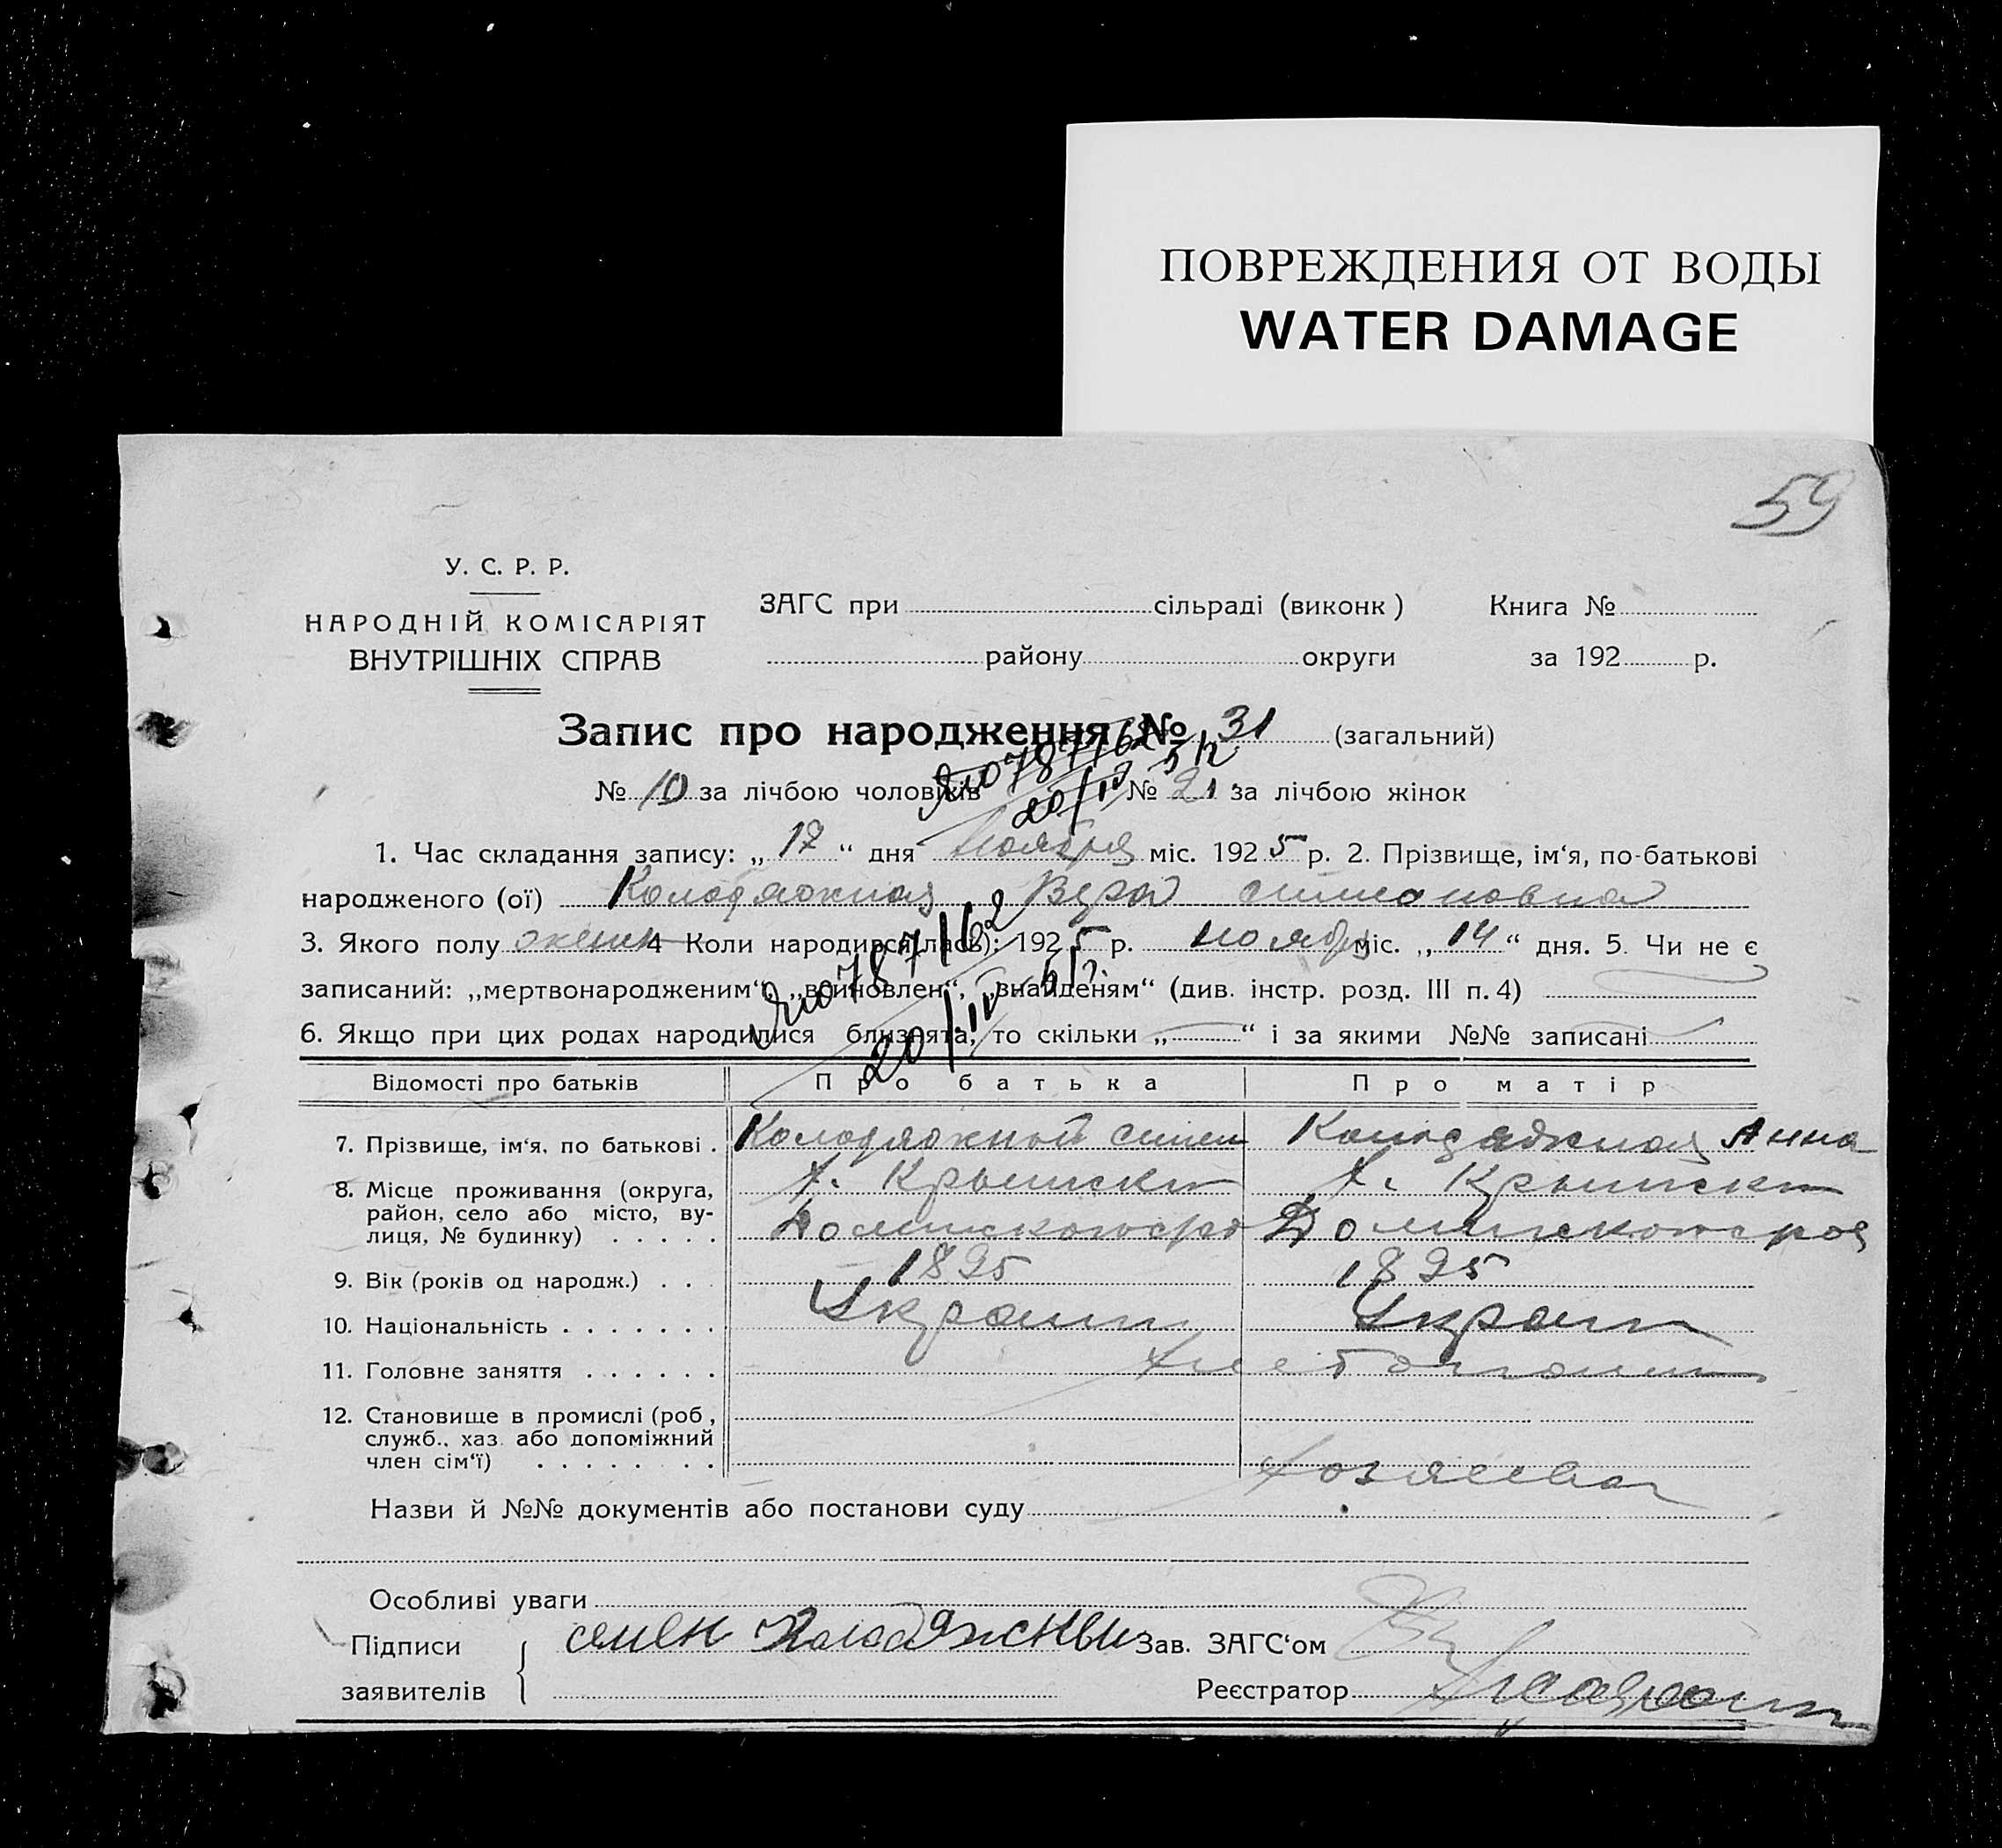 ПОВРЕЖДЕНИЯ ОТ ВОДЫ
WATER DAMAGE
59
У. С. Р. Р.
НАРОДНІЙ КОМІСАРІЯТ
ВНУТРІШНІХ СПРАВ
ЗАГС при сільраді (виконк) Книга №
району округи за 192 р.
Запис про народження № 31 (загальний)
№ 10 за лічбою чоловіків № 21 за лічбою жінок
1. Час складання запису: „17“ дня Ноября міс. 1925 р. 2. Прізвище, ім‘я, по-батькові
народженого (ої) Колодяжная Вера
3. Якого полу женск 4 Коли народився(лась): 1925 р. ноября міс. „14“ дня. 5. Чи не є
записаний: „мертвонародженим“, „відновлен“, „знайденям“ (див. інстр. розд. III п. 4)
6. Якщо при цих родах народилися близнята, то скільки „ “ і за якими №№ записані
Відомості про батьків Про батька Про матір
7. Прізвище, ім‘я, по батькові . Колодяжной Симен Колодяжная Анна
8. Місце проживання (округа, х. Крымски х. Крымски
район, село або місто, ву-
лиця, № будинку) . . . . .
9. Вік (років од народж.) . . . 1895 1895
10. Національність . . . . . . . Украин Украин
11. Головне заняття . . . . . . Хлебопашт
12. Становище в промислі (роб,
служб., хаз. або допоміжний
член сім‘ї) . . . . . . . . Хозяева
Назви й №№ документів або постанови суду
Особливі уваги
Підписи семен Зав. ЗАГС‘ом
заявителів Реєстратор